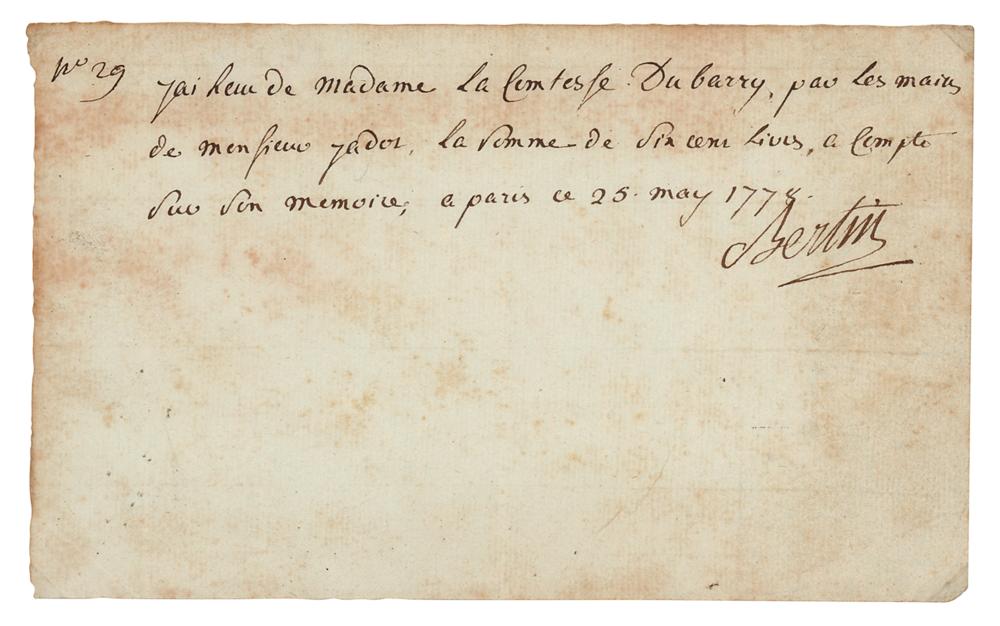 n° 29 jai Reçu de madame La Comtesse Dubarry, par les mains
de monsieur jadot, La somme de Six cent Livres, a Compte
sur Son memoire, a paris ce 25 may 1778.
Bertin